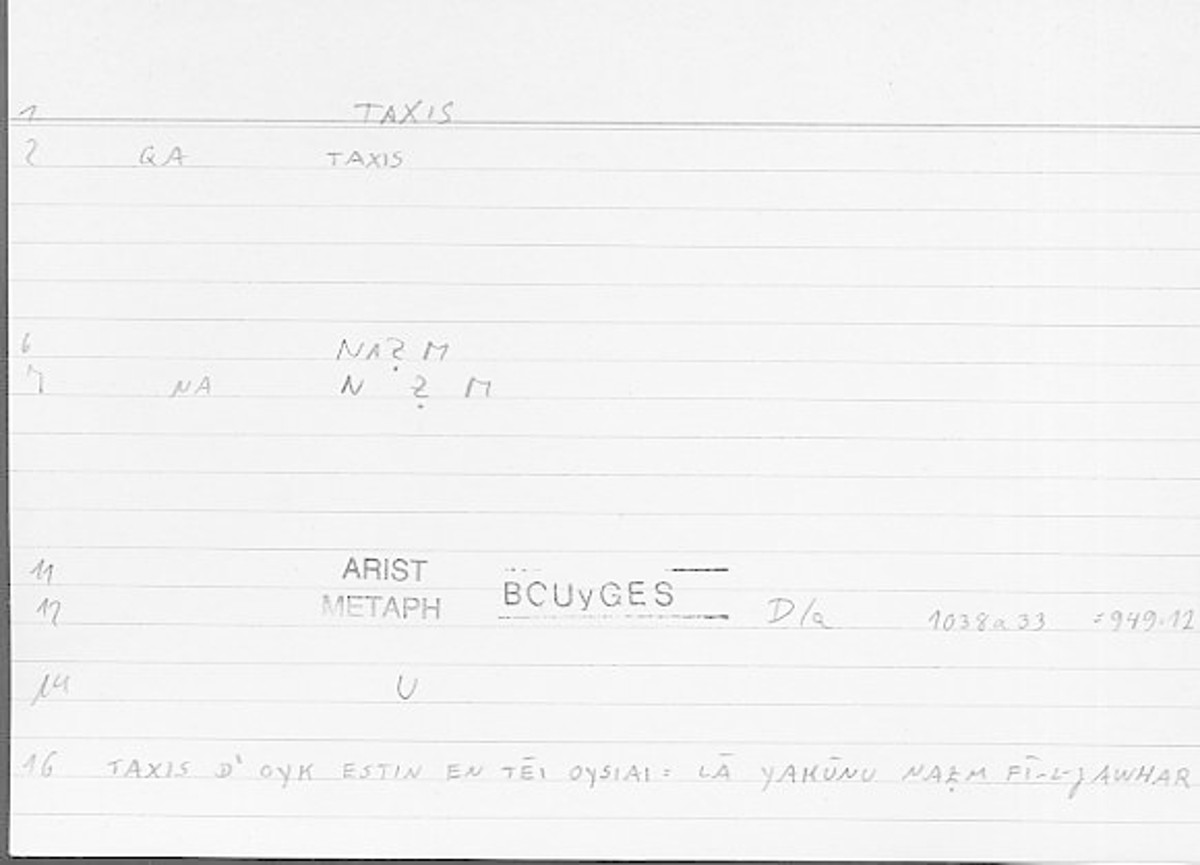 1 TAXIS
2 GA TAXIS
6 NAẒM
7 NA N Ẓ M
11 ARIST
12 METAPH BOUyGES D/a 1038a33 =949.12
14 U
16 TAXIS D' OyK ESTIN EN TĒI OySIAI = LĀ yAKŪNU NAẒM FĪ-L-JAWHAR